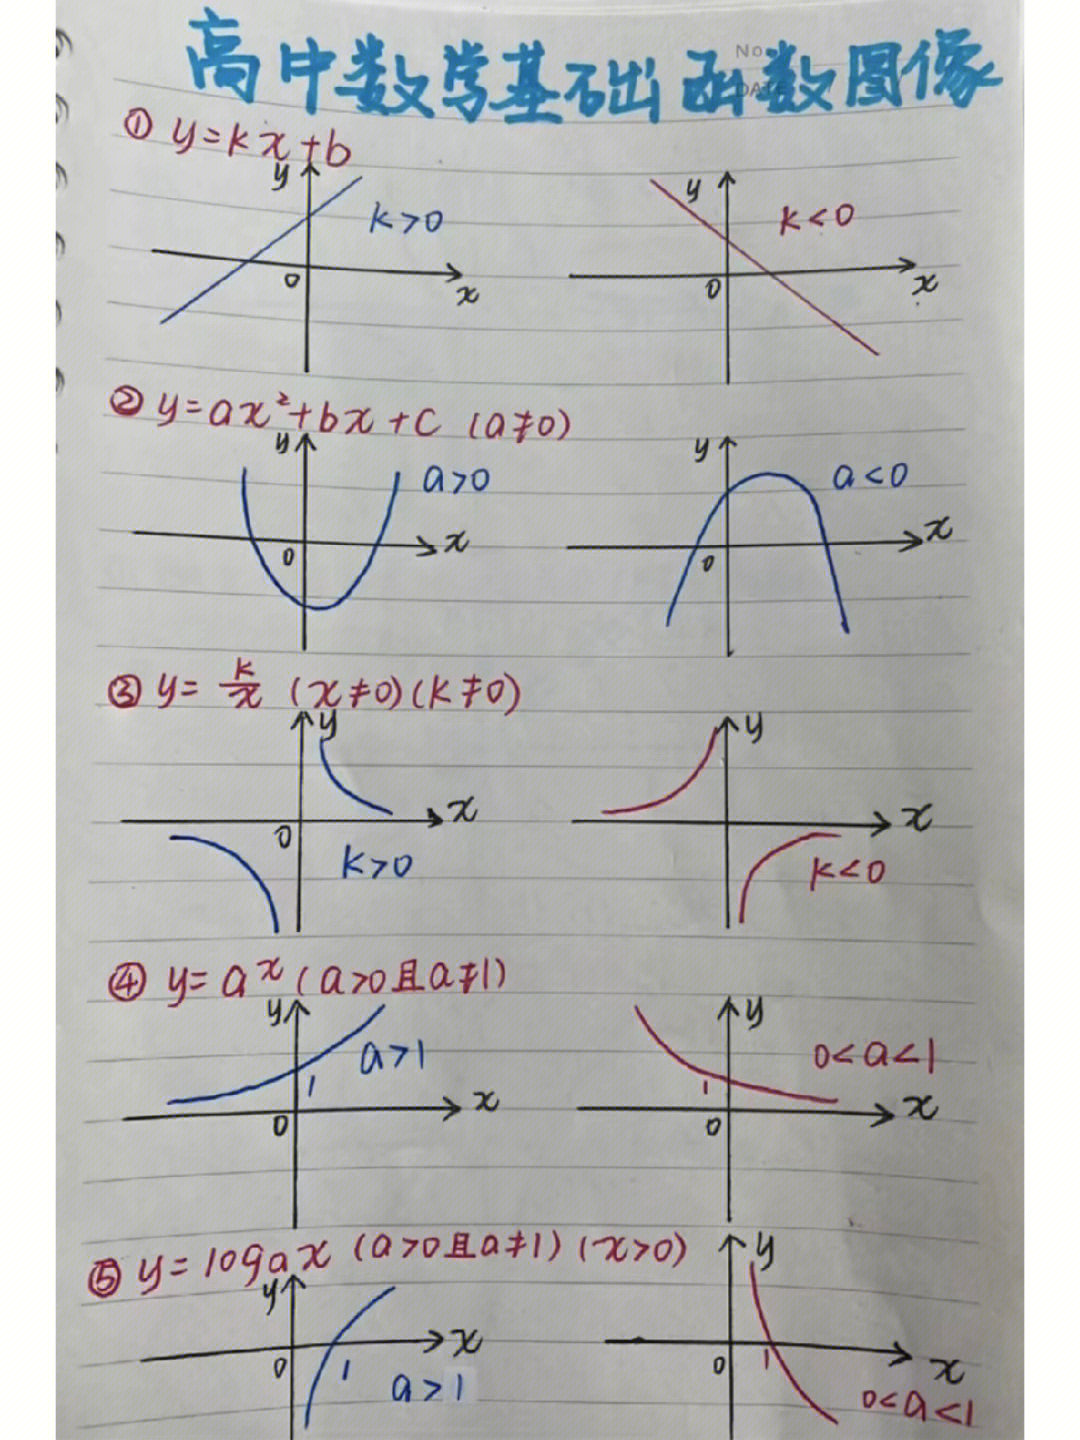 No
DATE
高中数学基础函数图像
① y=kx+b
y y
k>0 k<0
0 x 0 x
② y=ax²+bx+c (a≠0)
y y
a>0 a<0
x x
0 0
③ y= k/x (x≠0)(k≠0)
y y
x x
0
k>0 k<0
④ y=aˣ (a>0且a≠1)
y y
a>1 0<a<1
1 1
x x
0 0
⑤ y=logax (a>0且a≠1) (x>0)
y y
x x
0 1 0 1
a>1 0<a<1